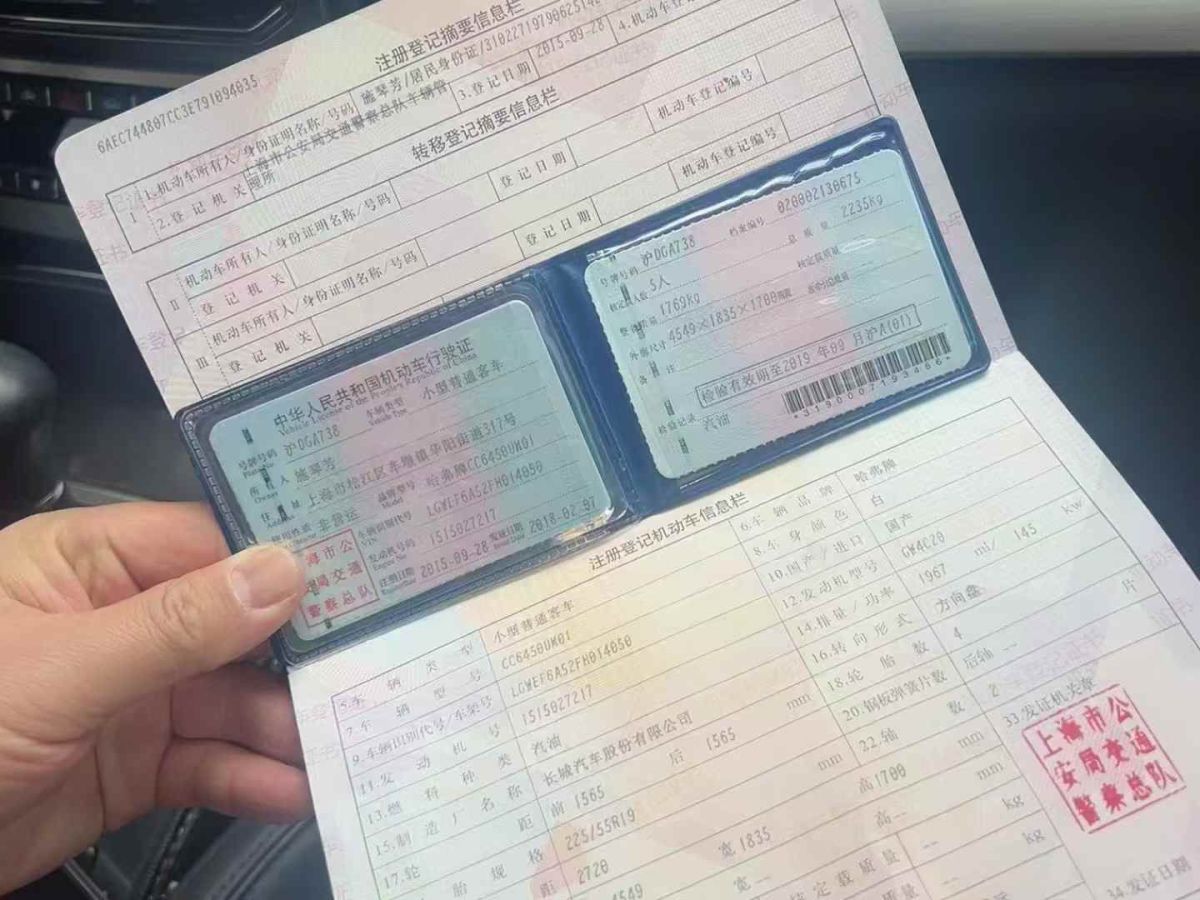 6AEC744807CC3E791094035
注册登记摘要信息栏
I 1.机动车所有人/身份证明名称/号码 施琴芳/居民身份证/3102271979062514
2.登记机关 上海市公安局交通警察总队车辆管理所 3.登记日期 2015-09-28 4.机动车登记
转移登记摘要信息栏
II 机动车所有人/身份证明名称/号码
登记机关 登记日期 机动车登记编号
III 机动车所有人/身份证明名称/号码
登记机关 登记日期 机动车登记编号
中华人民共和国机动车行驶证
Vehicle License of the People's Republic of China
号牌号码 沪DGA738 车辆类型 小型普通客车
Plate No. Vehicle Type
所有人 施琴芳
Owner
住址 上海市松江区车墩镇华阳街道317号
Address
使用性质 非营运 品牌型号 哈弗牌CC6450UM01
Model
车辆识别代号 LGWEF6A52FH014050
VIN
发动机号码 1515027217
Engine No.
注册日期 2015-09-28 发证日期 2018-02-07
Register Date Issue Date
海市公
局交通
警察总队
号牌号码 沪DGA738 档案编号 020002130675
核定载人数 5人 总质量 2235kg
整备质量 1769kg 核定载质量
外廓尺寸 4549×1835×1700
备注
检验有效期至2019年09月沪A(01)
检验记录 汽油
*3190007193486*
注册登记机动车信息栏
5.车辆类型 小型普通客车 6.车辆品牌 哈弗牌
7.车辆型号 CC6450UM01 8.车身颜色 白
9.车辆识别代号/车架号 LGWEF6A52FH014050 10.国产/进口 国产
11.发动机号 1515027217 12.发动机型号 GW4C20
13.燃料种类 汽油 14.排量/功率 1967 ml/ 145 kW
15.制造厂名称 长城汽车股份有限公司 16.转向形式 方向盘
距 前 1565 后 1565 mm 18.轮胎数 4
17.轮
胎规格 225/55R19 20.钢板弹簧片数 后轴 -- 片
距 2720 mm 22.轴数 2
4549 宽 1835 高 1700 mm
宽 -- 高 -- mm
核定载质量 -- kg
质量 -- kg
33.发证机关章
上海市公
安局交通
警察总队
34.发证日期